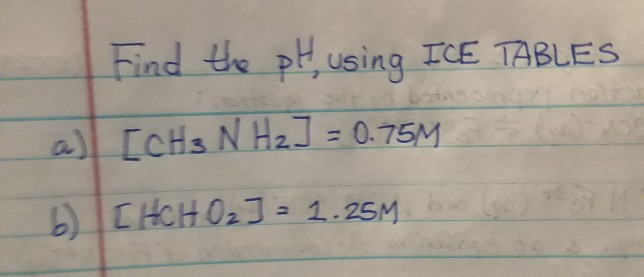 Find the pH, using ICE TABLES
a) [CH3NH2] = 0.75M
b) [HCHO2] = 1.25M